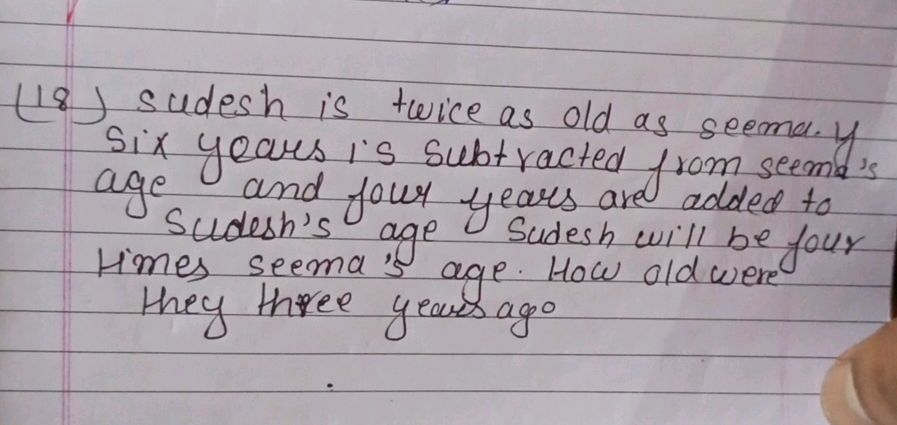 (18) Sudesh is twice as old as seema. y
Six years is subtracted from seema's
age and four years are added to
Sudesh's age Sudesh will be four
times seema's age. How old were
they three years ago